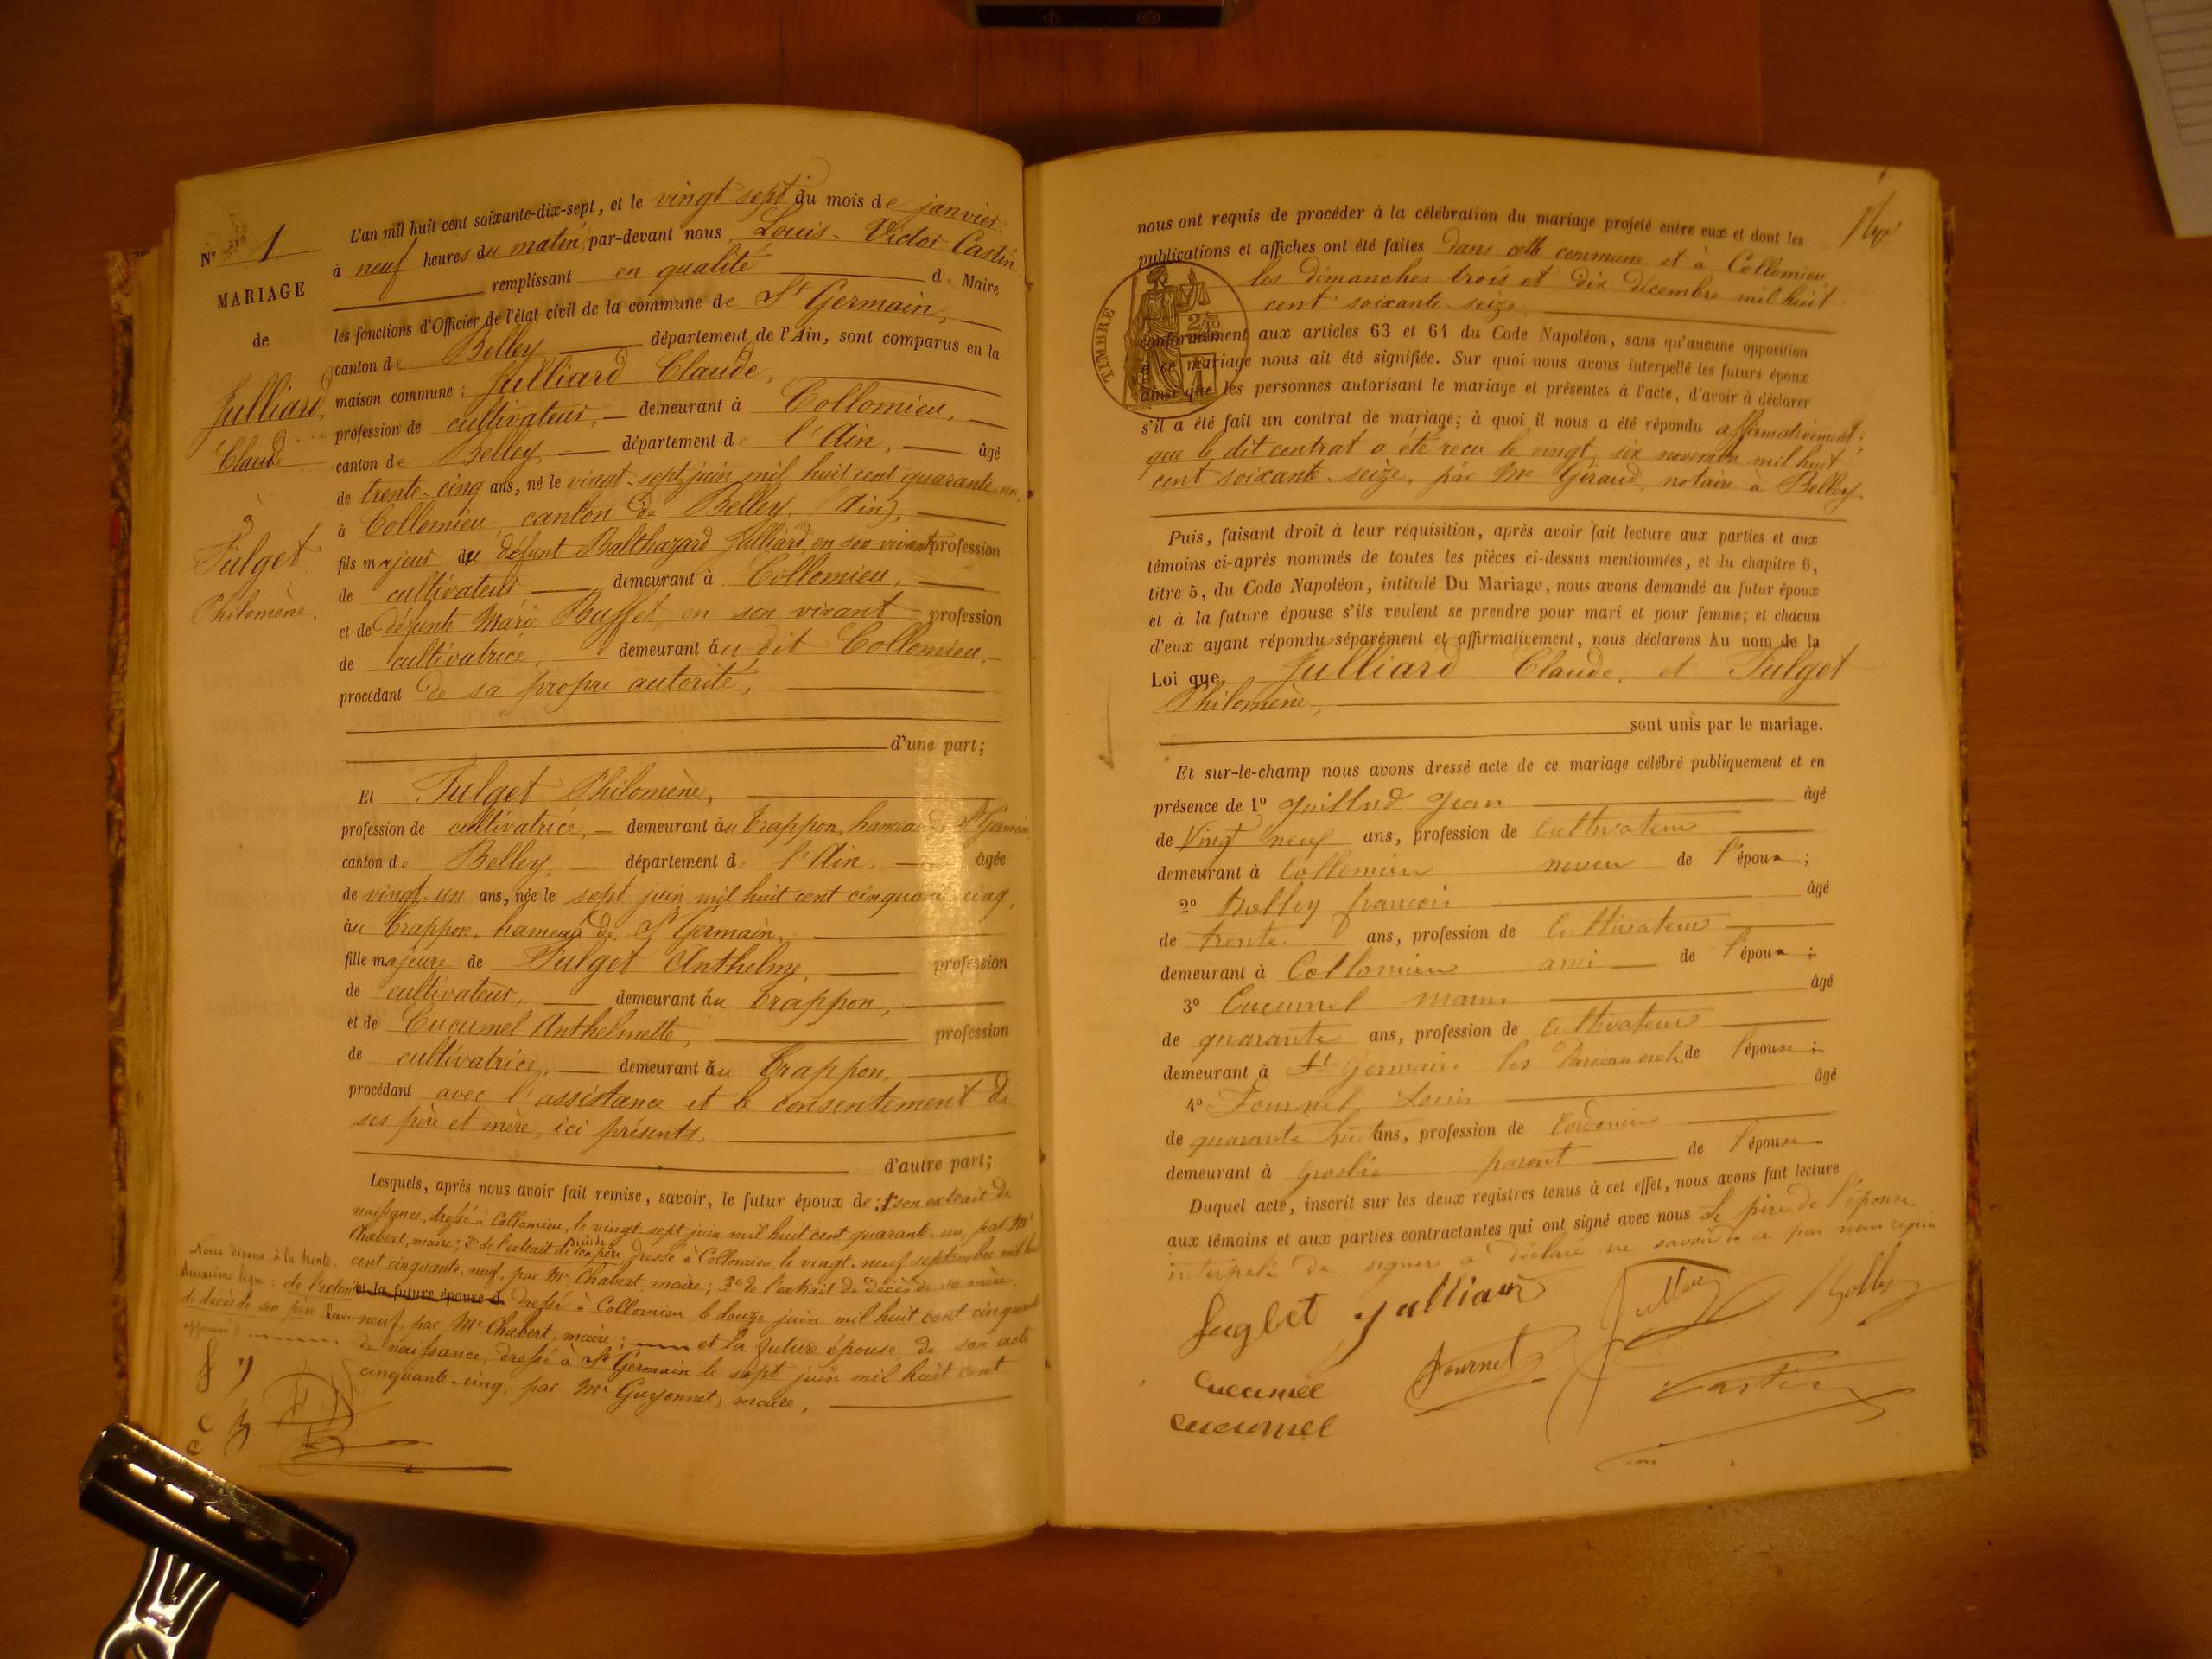 N° 1
MARIAGE
de
Julliard
Claude
à
Fulget
Philomène.
L'an mil huit cent soixante-dix-sept, et le vingt-sept du mois de janvier,
à neuf heures du matin, par-devant nous Louis-Victor Castin,
remplissant en qualité de Maire
les fonctions d'Officier de l'état civil de la commune de St Germain,
canton de Belley département de l'Ain, sont comparus en la
maison commune : Julliard Claude,
profession de cultivateur, demeurant à Collomieu,
canton de Belley, département de l'Ain, âgé
de trente-cinq ans, né le vingt-sept juin mil huit cent quarante-un,
à Collomieu, canton de Belley, (Ain),
fils majeur de défunt Balthazard Julliard, en son vivant profession
de cultivateur demeurant à Collomieu,
et de défunte Marie Buffet en son vivant profession
de cultivatrice, demeurant au dit Collomieu,
procédant de sa propre autorité,
d'une part;
Et Fulget Philomène,
profession de cultivatrice, demeurant au Crappon, hameau de St Germain,
canton de Belley, département de l'Ain, âgée
de vingt-un ans, née le sept juin mil huit cent cinquante-cinq,
au Crappon, hameau de St Germain,
fille majeure de Fulget Anthelme, profession
de cultivateur, demeurant au Crappon,
et de Cucumel Anthelmette, profession
de cultivatrice, demeurant au Crappon,
procédant avec l'assistance et le consentement de
ses père et mère, ici présents,
d'autre part;
Lesquels, après nous avoir fait remise, savoir, le futur époux de : 1° son extrait de
naissance, dressé à Collomieu, le vingt-sept juin mil huit cent quarante-un, par Mr
Chabert, maire; 2° de l'extrait de décès de son père dressé à Collomieu le vingt-neuf septembre mil huit
cent cinquante-neuf, par Mr Chabert, maire; 3° de l'extrait de décès de sa mère,
et la future épouse d dressé à Collomieu le douze juin mil huit cent cinquante
neuf, par Mr Chabert, maire; et la future épouse, de son acte
de naissance, dressé à St Germain le sept juin mil huit cent
cinquante-cinq, par Mr Guyonnet, maire,
Nous disons à la trente
deuxième ligne : de l'extrait
de décès de son père
nous ont requis de procéder à la célébration du mariage projeté entre eux et dont les
publications et affiches ont été faites dans cette commune et à Collomieu,
les dimanches trois et dix décembre mil huit
cent soixante-seize,
TIMBRE
conformément aux articles 63 et 64 du Code Napoléon, sans qu'aucune opposition
à ce mariage nous ait été signifiée. Sur quoi nous avons interpellé les futurs époux
ainsi que les personnes autorisant le mariage et présentes à l'acte, d'avoir à déclarer
s'il a été fait un contrat de mariage; à quoi il nous a été répondu affirmativement;
que le dit contrat a été reçu le vingt-six novembre mil huit
cent soixante-seize, par Me Giraud, notaire à Belley.
Puis, faisant droit à leur réquisition, après avoir fait lecture aux parties et aux
témoins ci-après nommés de toutes les pièces ci-dessus mentionnées, et du chapitre 6,
titre 5, du Code Napoléon, intitulé Du Mariage, nous avons demandé au futur époux
et à la future épouse s'ils veulent se prendre pour mari et pour femme; et chacun
d'eux ayant répondu séparément et affirmativement, nous déclarons Au nom de la
Loi que Julliard Claude, et Fulget
Philomène,
sont unis par le mariage.
Et sur-le-champ nous avons dressé acte de ce mariage célébré publiquement et en
présence de 1° Juilland Jean âgé
de Vingt neuf ans, profession de Cultivateur
demeurant à Collomieu neveu de l'époux;
2° Bolley françois âgé
de trente ans, profession de Cultivateur
demeurant à Collomieu ami de l'époux;
3° Cucumel Marin âgé
de quarante ans, profession de Cultivateur
demeurant à St Germain les Paroisses de l'épouse;
4° Fournet Louis âgé
de quarante huit ans, profession de Cordonnier
demeurant à Groslée parent de l'épouse
Duquel acte, inscrit sur les deux registres tenus à cet effet, nous avons fait lecture
aux témoins et aux parties contractantes qui ont signé avec nous le père de l'épouse
interpelé de signer a déclaré ne savoir de ce par nous requis
fuglet Julliard Bolley
Fournet
cucumel Castin
cucumel